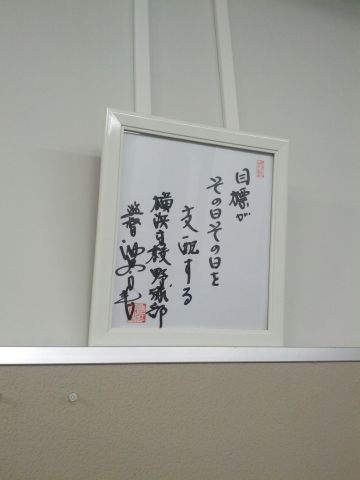 目標が
その日その日を
支配する
横浜高校野球部
監督 渡辺元智